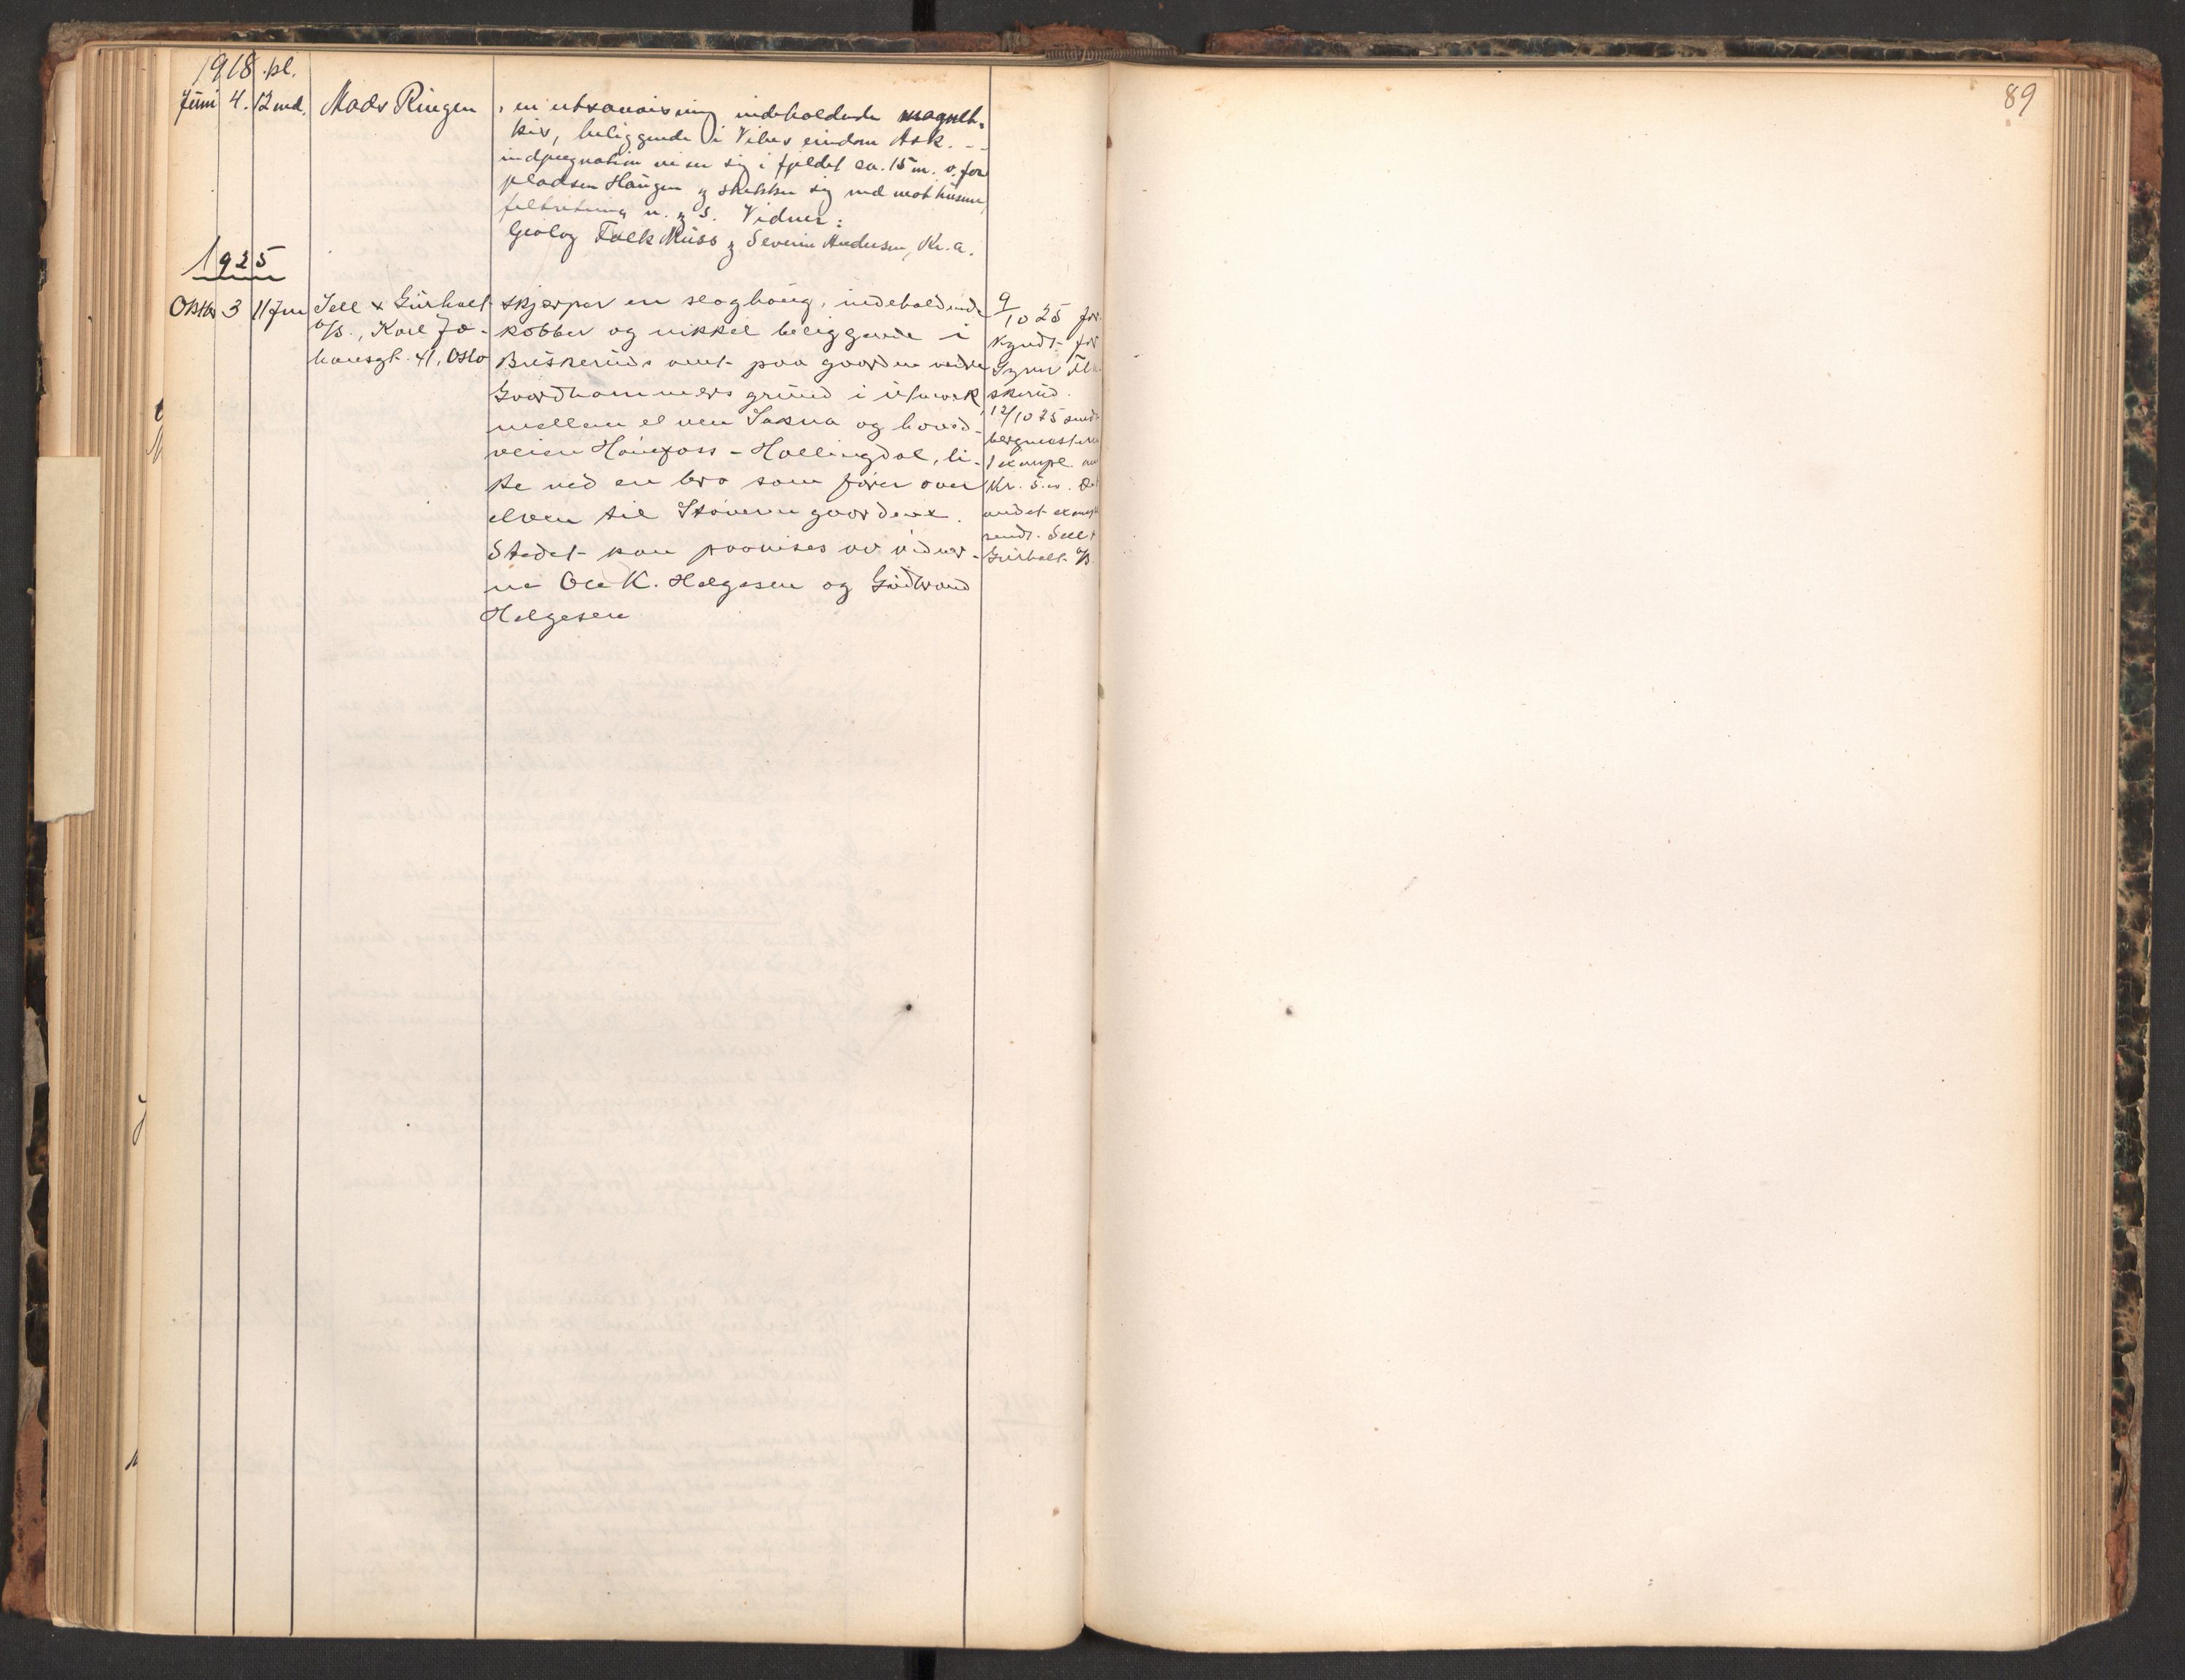 89
1918 kl.
Juni 4. 12 md. Mads Ringen
, en utvaaisning indeholdende magnet-
kis, beliggende i Vibes eiendom Ask. - -
indpregnation viser sig i fjeldet ca. 15 m. v. for
pladsen Haugen og strekker sig ned mot husene,
feltretning n. og s. Vidner:
Geolog Falck Muus og Severin Andersen, Kr.a.
1925
Oktbr 3 11 fm Sell & Gurholt
A/S., Karl Jo-
hansgt. 41, Oslo
skjærper en slaghaug, indeholdende
kobber og nikkel beliggende i
Buskeruds amt paa gaarden nedre
Gaardhammers grund i utmark
mellem elven Sokna og hoved-
veien Hønefoss - Hallingdal, li-
ke ved en bro som fører over
elven til Støveren gaardene.
Stedet kan paavises av vidner-
ne Ole K. Helgesen og Gudbrand
Helgesen
9/10 25 for-
kyndt for
Gyrur
skerud.
12/10 25 sendt
bergmesteren
1 exempl. 
Kr. 5.00. Det
andet exempl
sendt Sell &
Gurholt A/S.